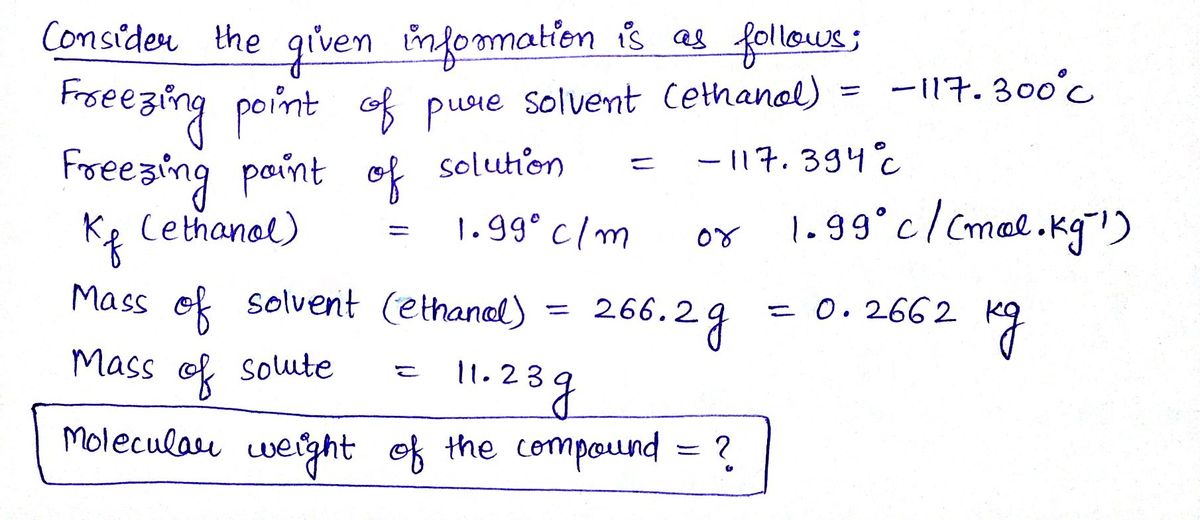 Consider the given information is as follows;
Freezing point of pure solvent (ethanol) = -117.300°C
Freezing point of solution = -117.394°C
Kf (ethanol) = 1.99°C/m or 1.99°C/(mol.kg⁻¹)
Mass of solvent (ethanol) = 266.2g = 0.2662 kg
Mass of solute = 11.23g
Molecular weight of the compound = ?